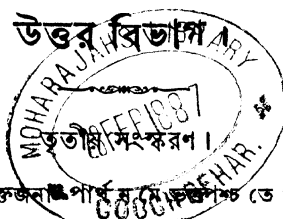 উত্তর বিভাগ।
তৃতীয় সংস্করণ।
MOHARAJAH LIBRARY
28 FEB 1887
COOCH BEHAR.
পার্থ ন মে তে